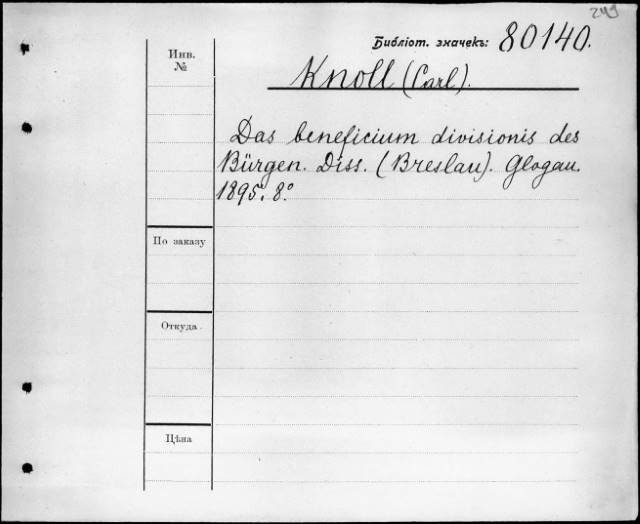 249
Библіот. значекъ: 80140.
Инв.
№
Knoll (Carl).
Das beneficium divisionis des
Bürgen. Diss. (Breslau). Glogau.
1895. 8.°
По заказу
Откуда
Цѣна